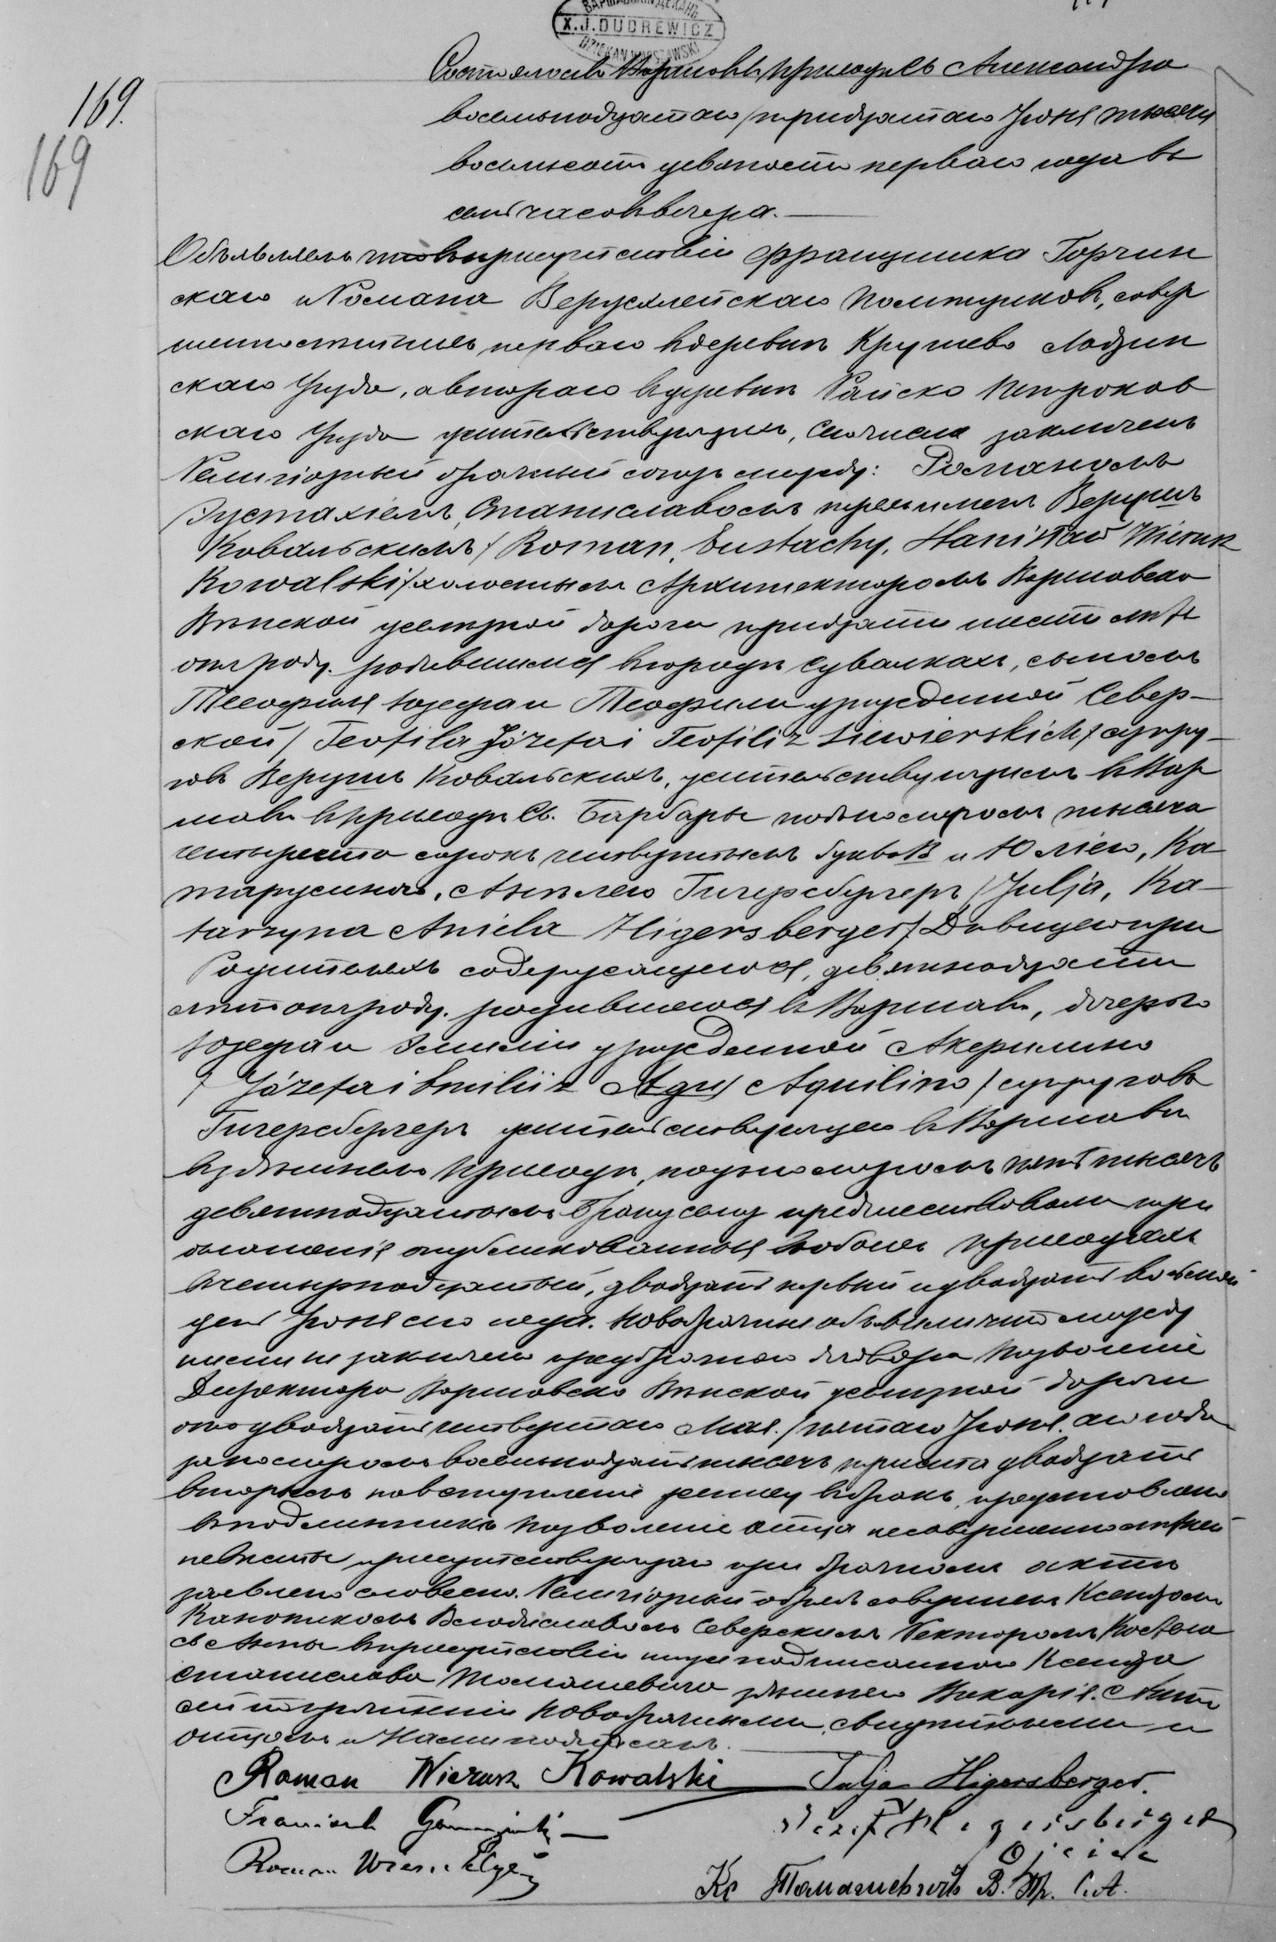 ВАРШАВСКІЙ ДЕКАНЪ
X. J. DUDREWICZ
DZIEKAN WARSZAWSKI
169.
169
Состоялось въ Варшавѣ, приходѣ Св. Александра
восемнадцатаго /тридцатаго Іюня тысяча
восемьсотъ девяносто перваго года въ
семь часовъ вечера.
Объявляемъ что въ присутствіи Францишка Горчин
скаго и Романа Верусхлейскаго помѣщиковъ, совер
шеннолѣтнихъ, перваго въ деревнѣ Крушево Лодзин
скаго Уѣзда, а втораго въ деревнѣ Райско Петроков
скаго Уѣзда жительствующихъ, сего числа заключенъ
Религіозный брачный союзъ между: Романомъ
Эустахіемъ, Станиславомъ трехъ именъ Верушъ
Ковальскимъ / Roman, Eustachy, Stanisław Wierusz
Kowalski / холостымъ Архитекторомъ Варшавско
Вѣнской желѣзной дороги тридцати шести лѣтъ
отъ роду. родившимся въ городѣ Сувалкахъ, сыномъ
Теофиля Юзефа и Теофили урожденной Север-
ской / Teofila Józefa i Teofili z Siewierskich / супру-
говъ Верушъ Ковальскихъ, жительствующимъ въ Вар
шавѣ въ приходѣ Св. Барбары подъ номеромъ тысяча
четыреста сорокъ четвертымъ буква В и Юліею, Ка-
таржиною, Анѣлею Гигерсбергеръ / Julja, Ka-
tarzyna Aniela Higersberger / Дѣвицею при
Родителяхъ содержащеюся, девятнадцати
лѣтъ отъ роду. родившеюся въ Варшавѣ, дочерью
Юзефа и Эмиліи урожденной Акерилино
/ Józefa i Emilii z Aqu / Aquilino / супруговъ
Гигерсбергеръ жительствующею въ Варшавѣ
въ здѣшнемъ приходѣ, подъ номеромъ пять тысячъ
девятнадцатымъ. Браку сему предшествовали три
оглашенія опубликованныя въ обоихъ приходахъ
въ четырнадцатый, двадцать первый и двадцать восьмой
день Іюня сего года. Новобрачные объявили что между
ними не заключено предбрачнаго договора Позволеніе
Директора Варшавско Вѣнской желѣзной дороги
отъ двадцать четвертаго Мая /пятаго Іюня. сего года
за номеромъ восемнадцать тысячъ триста двадцать
вторымъ на вступленіе жениху въ бракъ, представлено
въ подлинникѣ Позволеніе отца несовершеннолѣтней
невѣсты присутствующаго при брачномъ актѣ
заявлено словесно. Религіозный обрядъ совершенъ Ксендзомъ
Каноникомъ Владиславомъ Северскимъ Ректоромъ Костела
Св Анны въ присутствіи нижеподписаннаго Ксендза
Станислава Томашевича здѣшняго Викарія. Актъ
сей по прочтеніи Новобрачными, свидѣтелями и
отцомъ и Нами подписанъ.
Roman Wierusz Kowalski Julja Higersberger.
Franciszek Józef Higersberger
Roman Ojciec
Кс Томашевичъ В. Пр. С.А.